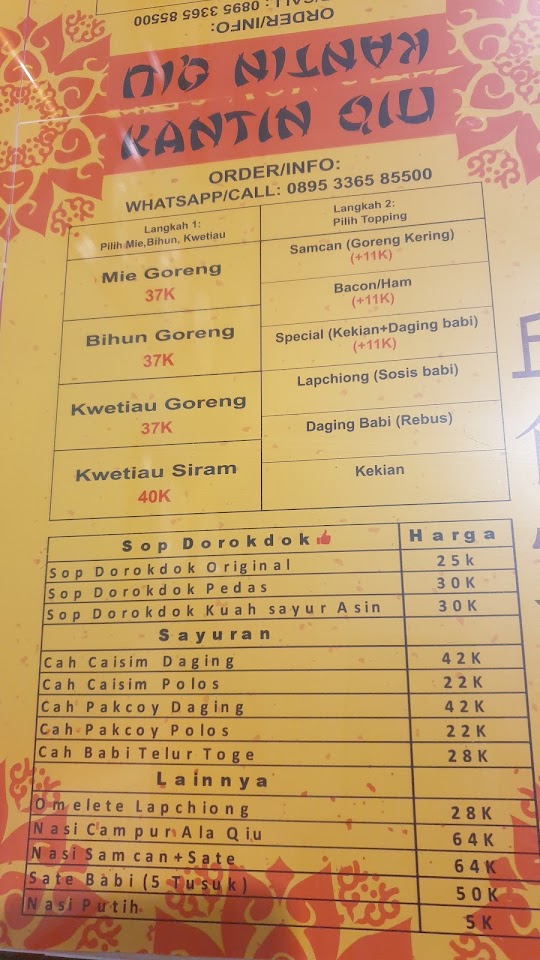 WHATSAPP/CALL: 0895 3365 85500
ORDER/INFO:
KANTIN QIU
KANTIN QIU
ORDER/INFO:
WHATSAPP/CALL: 0895 3365 85500
Langkah 1:
Pilih Mie,Bihun, Kwetiau
Langkah 2:
Pilih Topping
Mie Goreng
37K
Bihun Goreng
37K
Kwetiau Goreng
37K
Kwetiau Siram
40K
Samcan (Goreng Kering)
(+11K)
Bacon/Ham
(+11K)
Special (Kekian+Daging babi)
(+11K)
Lapchiong (Sosis babi)
Daging Babi (Rebus)
Kekian
Sop Dorokdok Harga
Sop Dorokdok Original 25k
Sop Dorokdok Pedas 30K
Sop Dorokdok Kuah sayur Asin 30K
Sayuran
Cah Caisim Daging 42K
Cah Caisim Polos 22K
Cah Pakcoy Daging 42K
Cah Pakcoy Polos 22K
Cah Babi Telur Toge 28K
Lainnya
Omelete Lapchiong 28K
Nasi Campur Ala Qiu 64K
Nasi Samcan+Sate 64K
Sate Babi (5 Tusuk) 50K
Nasi Putih 5K